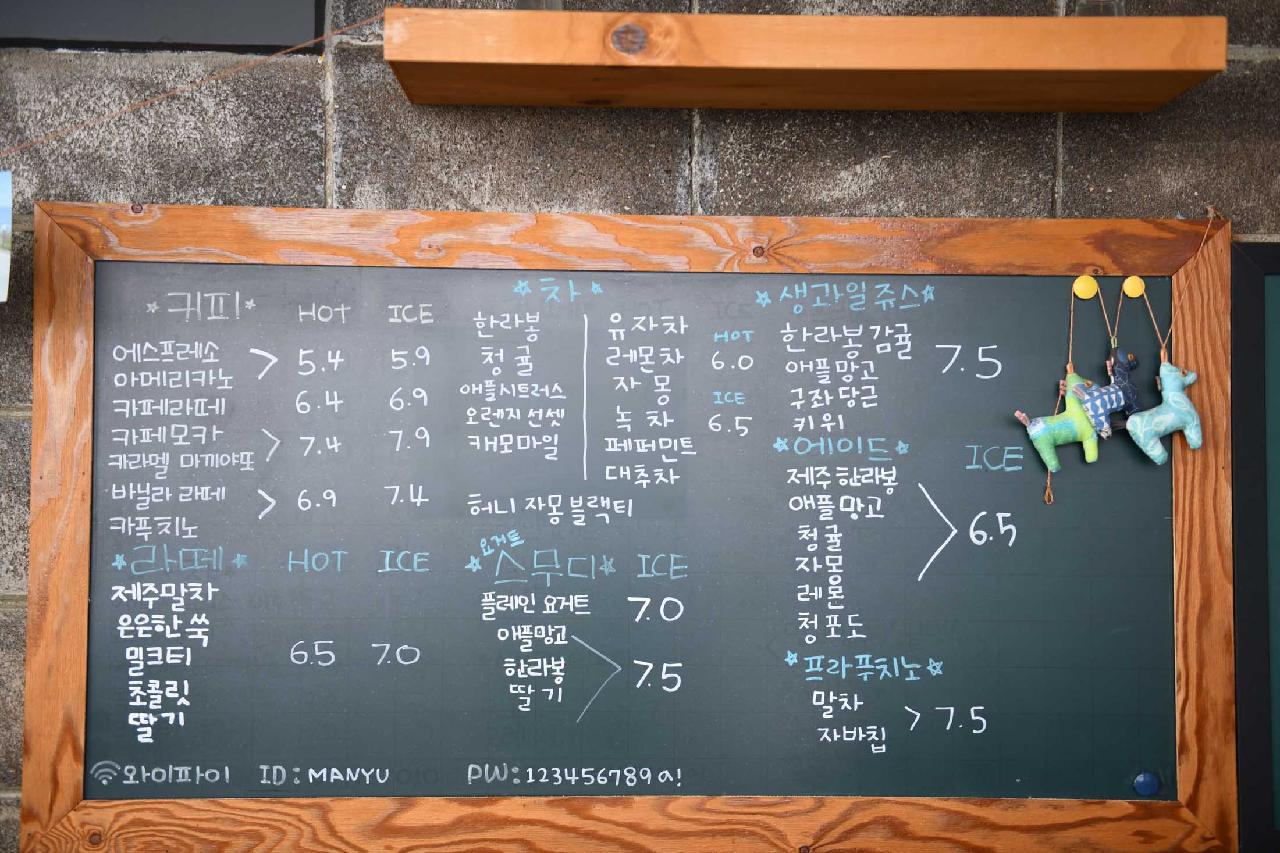 커피 HOT ICE
에스프레소
아메리카노 5.4 5.9
카페라떼 6.4 6.9
카페모카
카라멜 마끼야또 7.4 7.9
바닐라 라떼
카푸치노 6.9 7.4
라떼 HOT ICE
제주말차
은은한 쑥
밀크티 6.5 7.0
초콜릿
딸기
차
한라봉
청귤
애플시트러스
오렌지 선셋
캐모마일
유자차
레몬차
자몽
녹차
페퍼민트
대추차
HOT
6.0
ICE
6.5
허니 자몽 블랙티
요거트
스무디 ICE
플레인 요거트 7.0
애플망고
한라봉 7.5
딸기
생과일 쥬스
한라봉감귤
애플망고 7.5
구좌당근
키위
에이드 ICE
제주한라봉
애플망고
청귤 6.5
자몽
레몬
청포도
프라푸치노
말차
자바칩 7.5
와이파이 ID: MANYU PW: 123456789a!